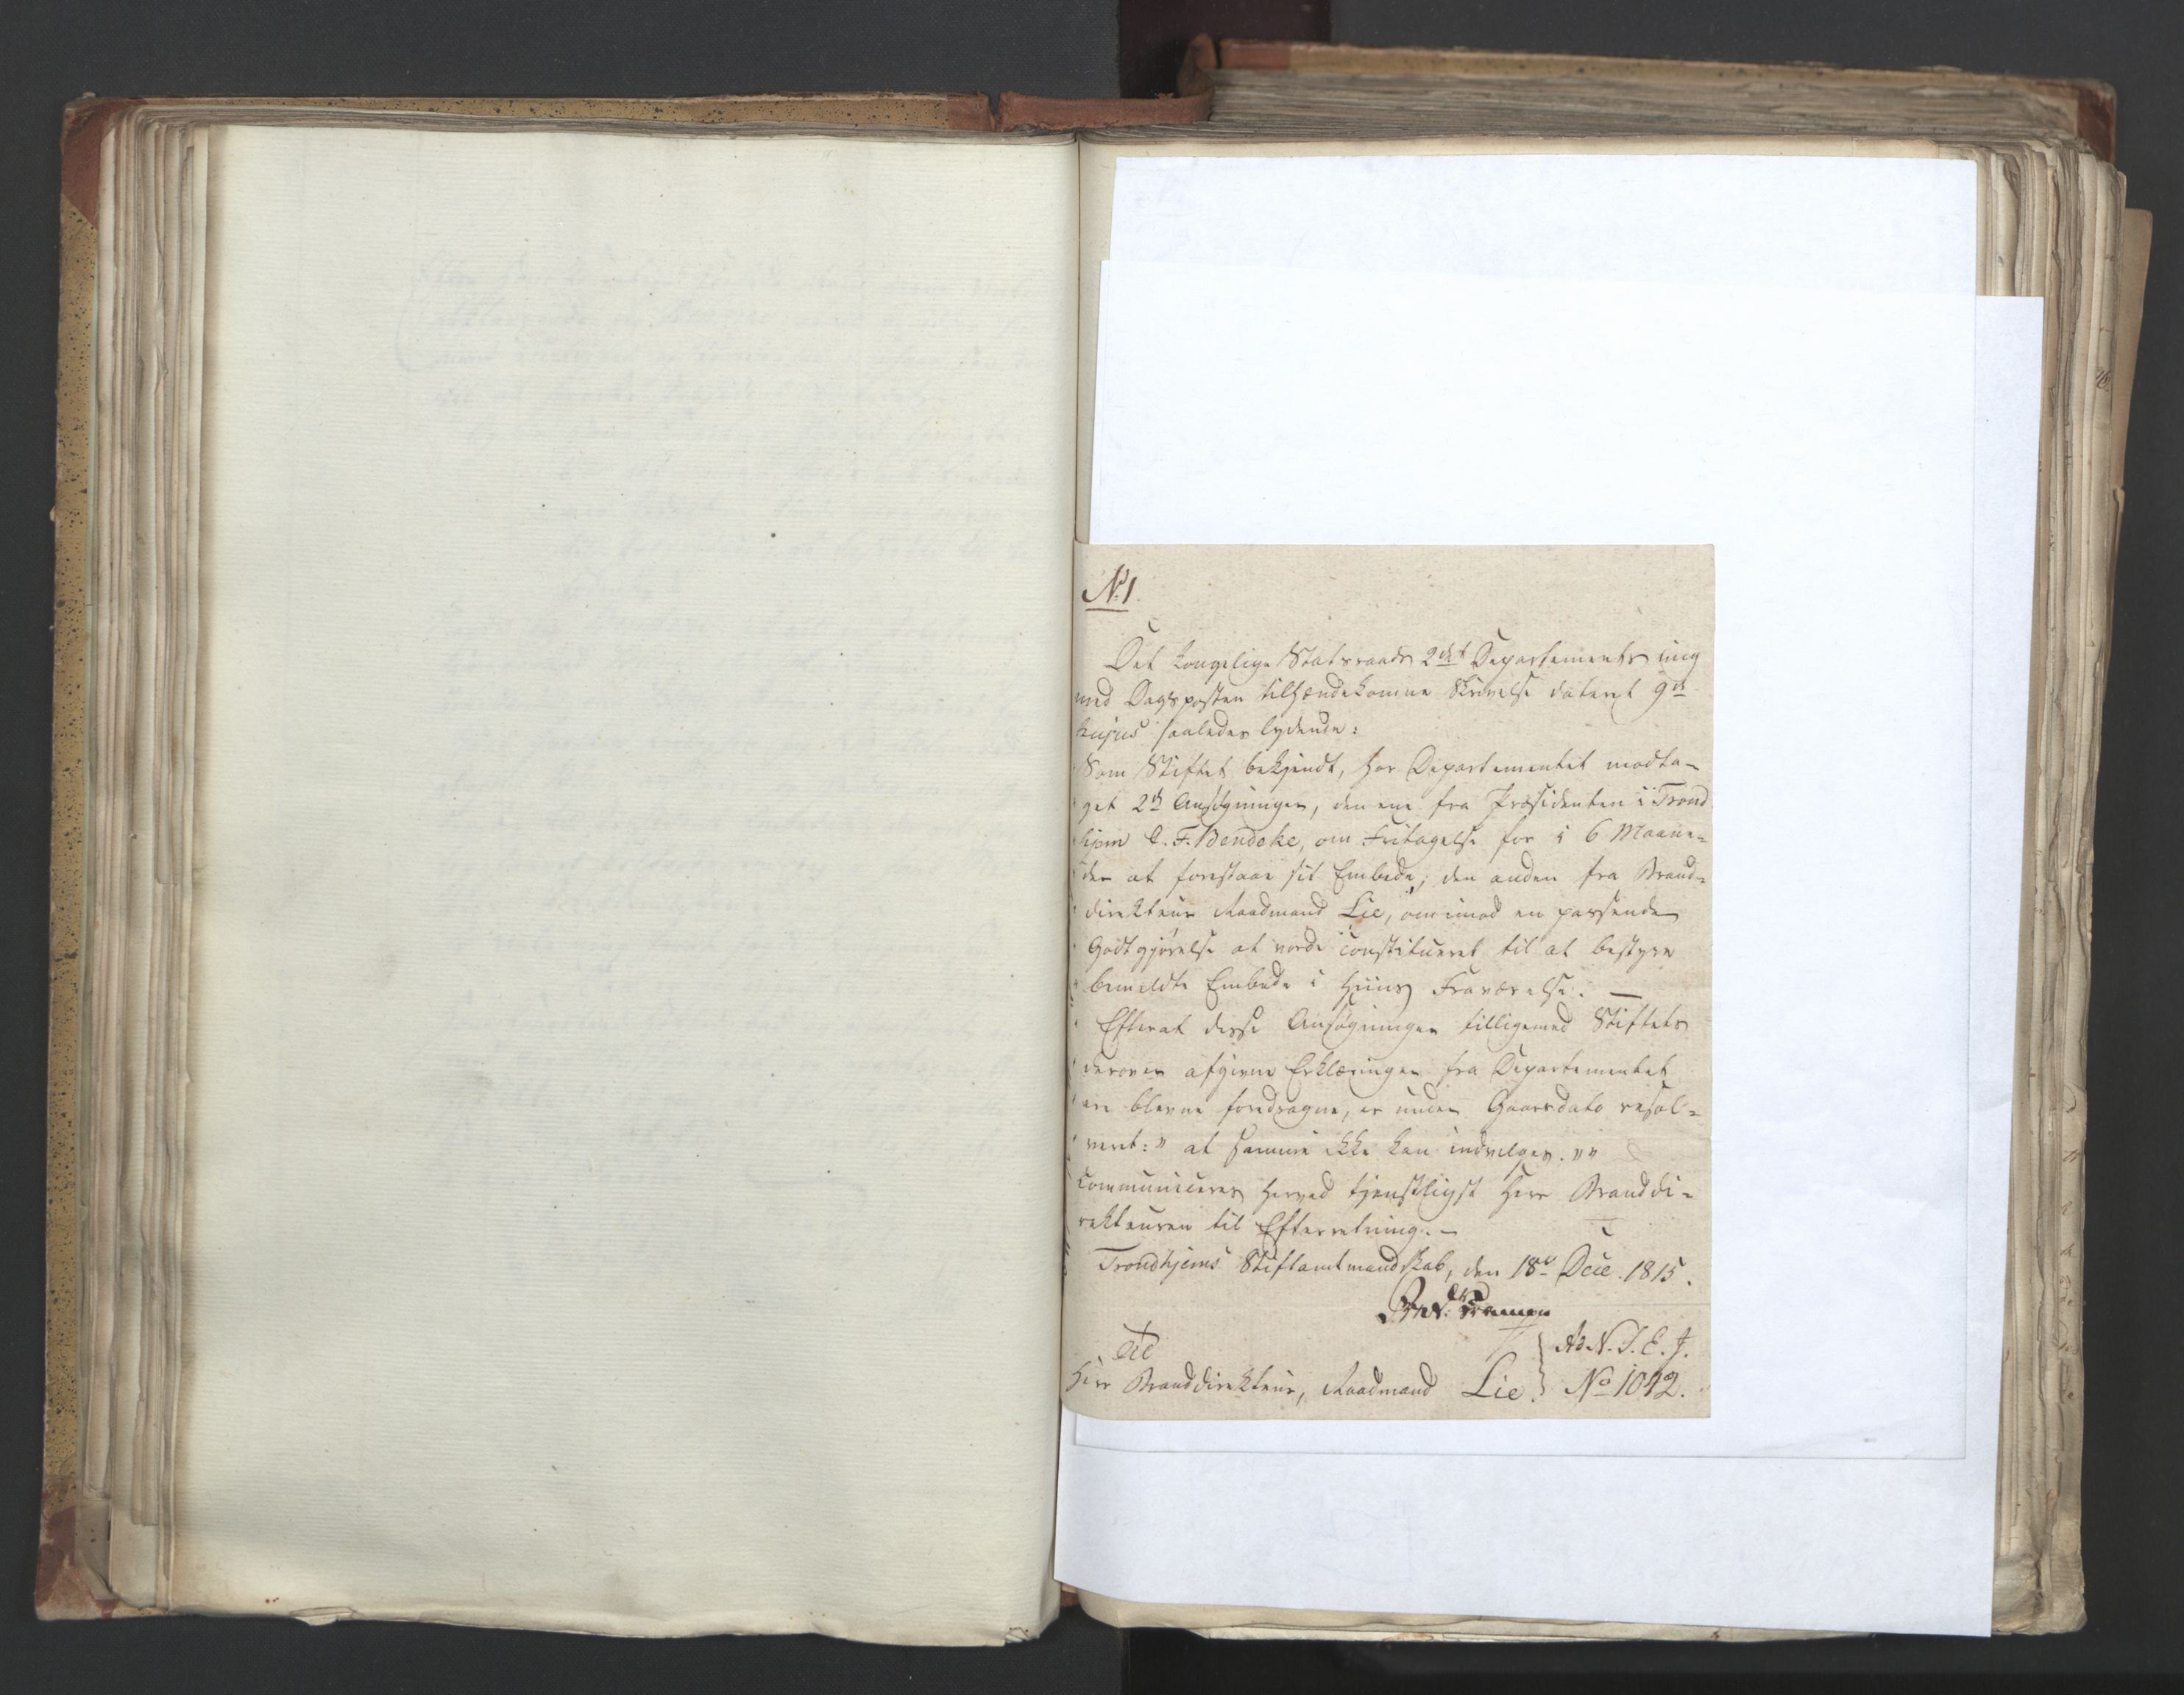 No 1.
Det kongelige Statsraads 2det Departements mig
med Dagsposten tilhændekomne Skrivelse dateret 9de
hujus saaledes lydende:
Som Stiftet bekjendt, har Departementet modta-
" get 2de Ansøgninger, den ene fra Præsidenten i Trond
" hjem C. F. Bendeke, om Fritagelse for i 6 Maane-
" der at forestaae sit Embede; den anden fra Brand-
" direkteur Raadmand Lie, om imod en passende
" Godtgjørelse at vorde constitueret til at bestyre
" bemeldte Embede i Hiins Fraværelse. —
" Efterat disse Ansøgninger tilligemed Stiftets
" derover afgivne Erklæringer fra Departementet
" ere blevne foredragne, er under Gaarsdato resol-
" veret: " at samme ikke kan indvilges. ""
communiceres herved tjenstligst Herr Branddi-
rekteuren til Efterretning. —
Trondhjems Stiftamtmandskab, den 18de Dece. 1815.
Herr Branddirekteur, Raadmand Lie.
No 1042.